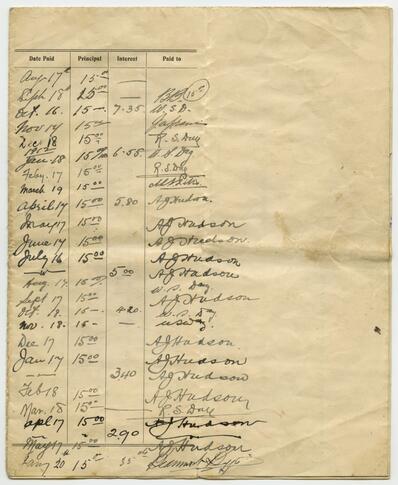 Date Paid Principal Interest Paid to
Aug 17 15.00 —
Sept 18 25.00 — 15.00
Oct. 16. 15 — 7.35 W.S.D.
Nov 14 15.00
Dec 18 15.00 R.S. Day
Jan. 18 15.00 6.55
Feby. 17 15.00 R.S. Day
March 19 15.00
April 17 15.00 5.80 A J Hudson
May 17 15.00 A J Hudson
June 17 15.00 A J Hudson
July 16 15.00 A J Hudson
— " — 5.00 A J Hudson
Aug. 17. 15.00 W.S. Day
Sept 17 15.00 A J Hudson
Oct. 18. 15. — 4.20 W.S. Day
Nov. 18. 15 — — W.S. Day
Dec 17 15.00 A J Hudson
Jan. 17 15.00 A J Hudson
3.40 A J Hudson
Feb 18 15.00 A J Hudson
Mar. 18 15.00 R.S. Day
Apl 17 15.00 A J Hudson
— 2.90 —
May 17 15.00 A J Hudson
20 15.00